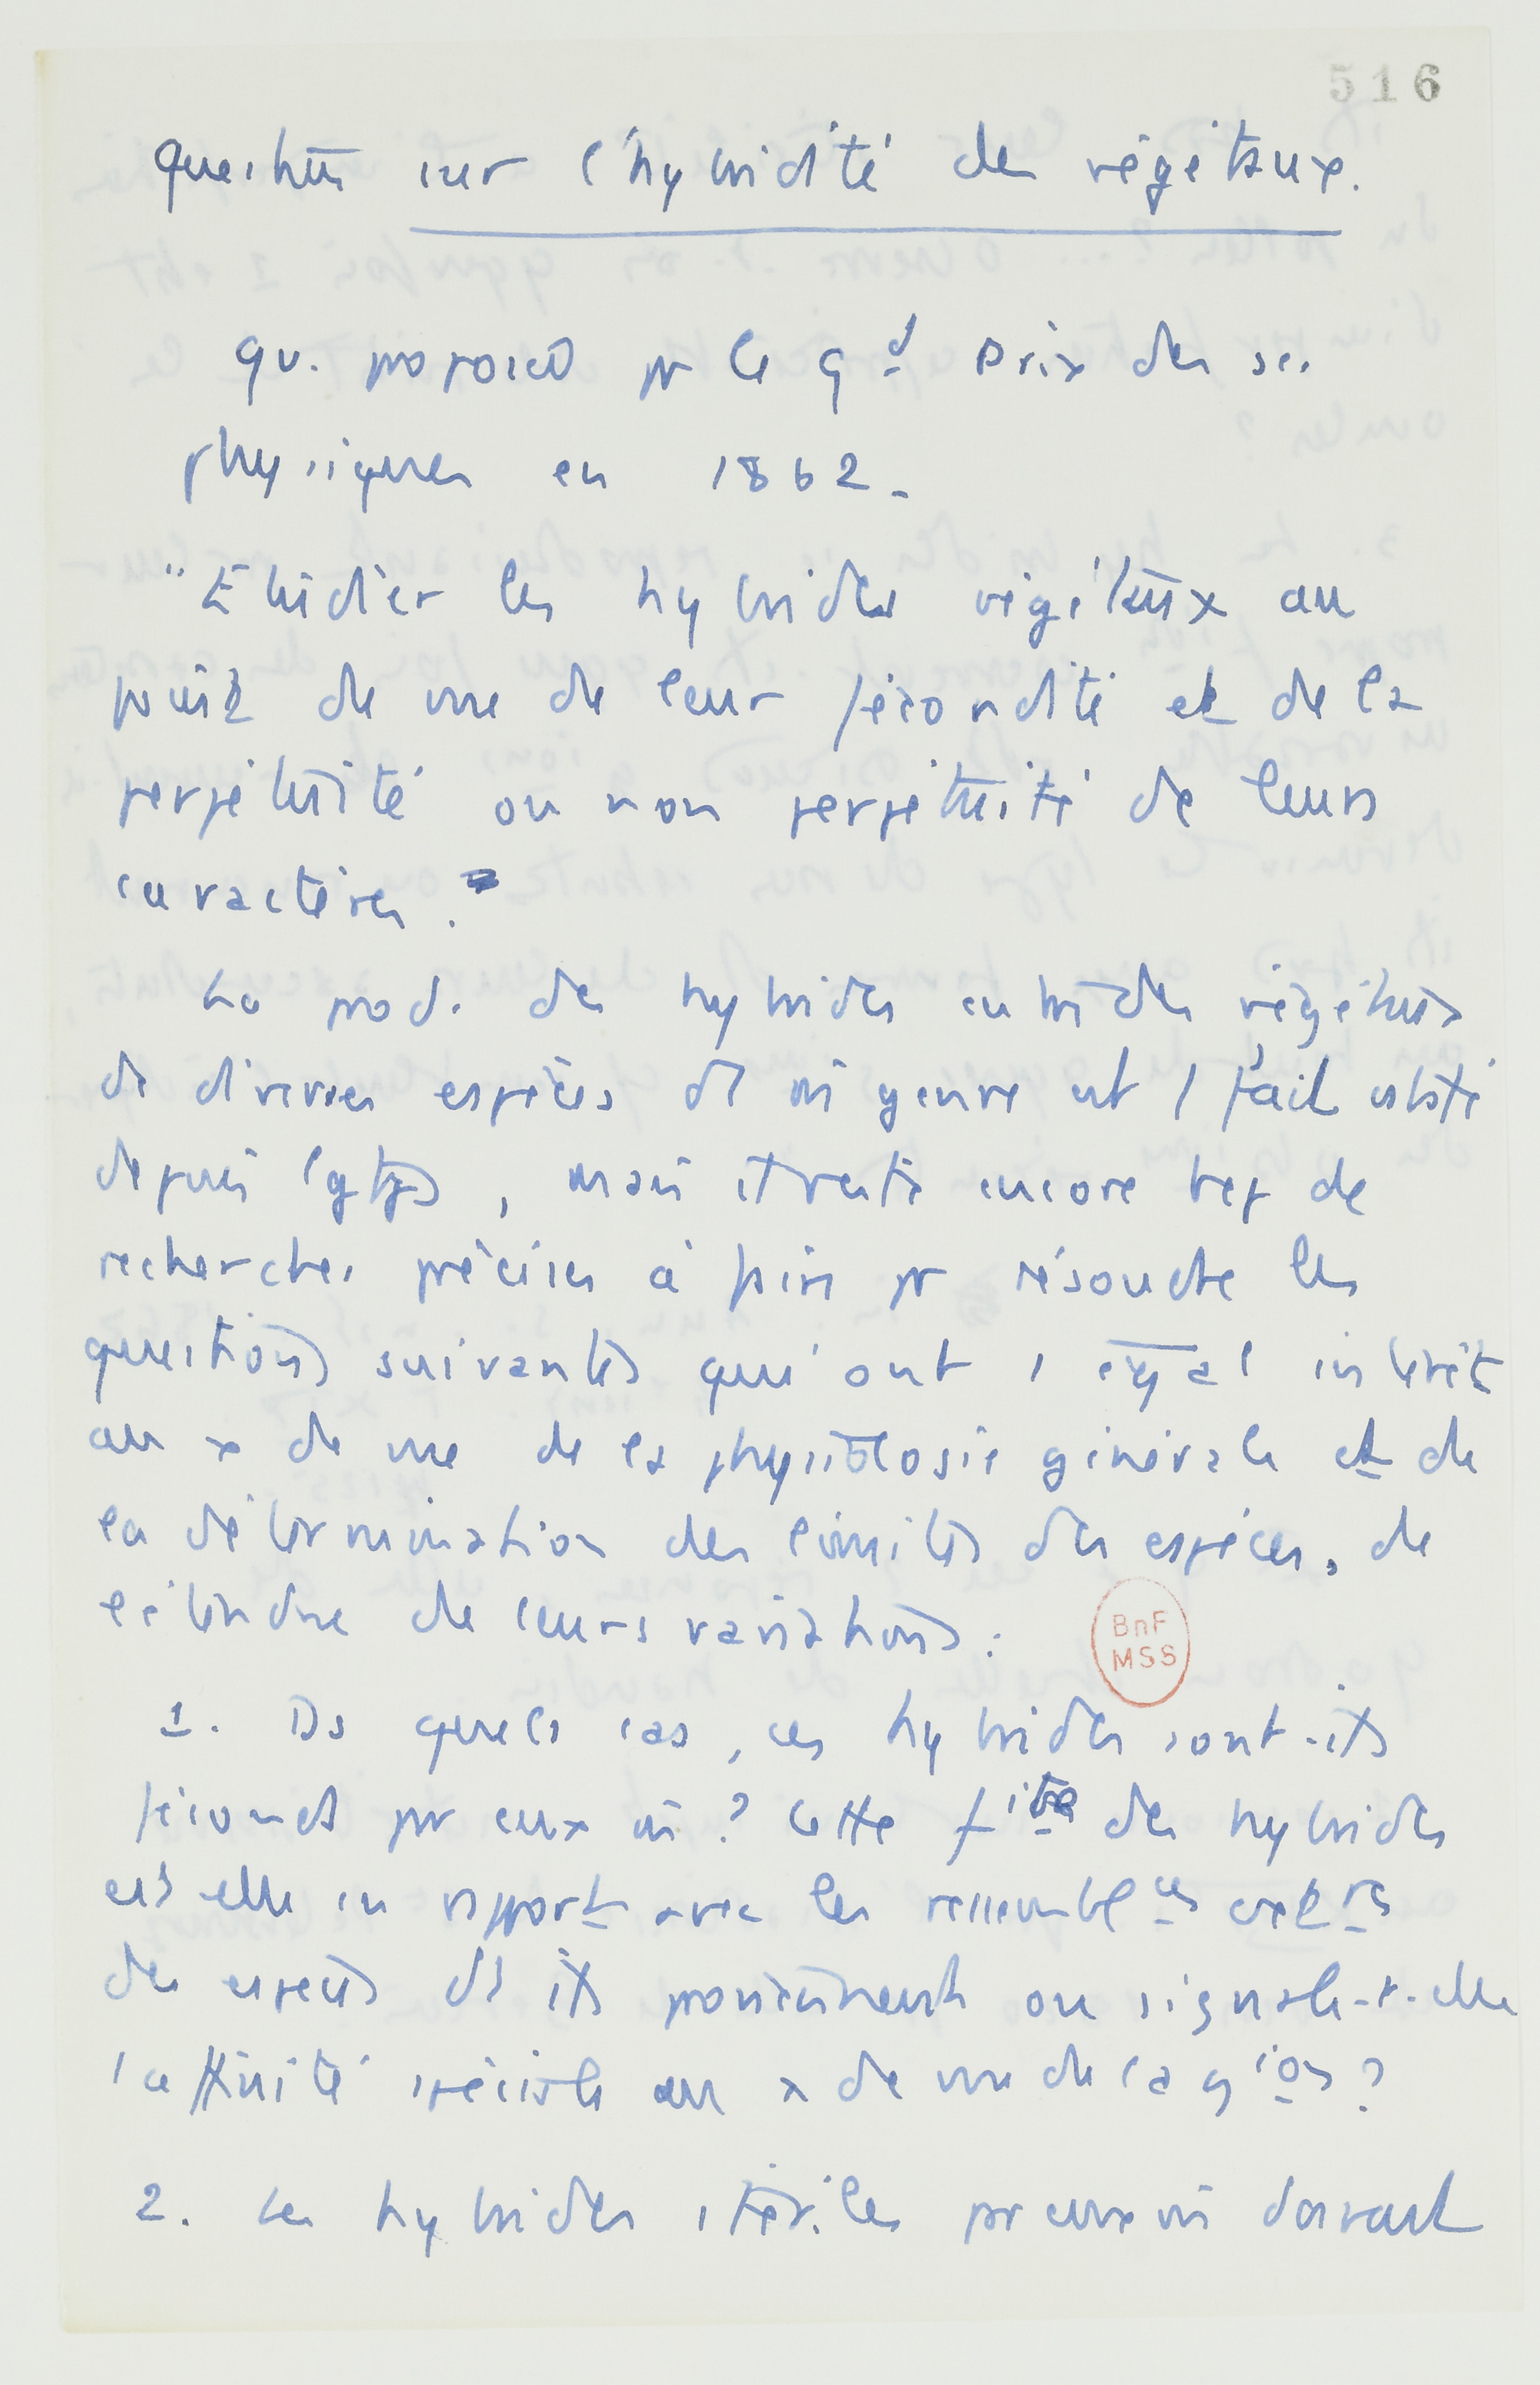 516
Question sur l'hybridité des végétaux.
qu. proposée pr le gd Prix des sc.
physiques en 1862.
"Etudier les hybrides végétaux au
point de vue de leur fécondité et de la
perpétuité ou non perpétuité de leurs
caractères."
La prod. des hybrides entre des végétaux
de diverses espèces d'1 m genre est 1 fait
depuis lgtps, mais il reste encore bcp de
recherches précises à faire pr résoudre les
questions suivantes qui ont 1 égal intérêt
au x de vue de la physiologie générale et de
la détermination des limites des espèces, de
l'étendue de leurs variations.
BnF
MSS
1. Ds quels cas, ces hybrides sont-ils
féconds par eux m? Cette fité des hybrides
est elle en rapport avec les ressemblces extres
des espèces ds ils proviennent ou signale-t-elle
1 affinité spéciale au x de vue de la gion?
2. Les hybrides stériles par eux m doivent